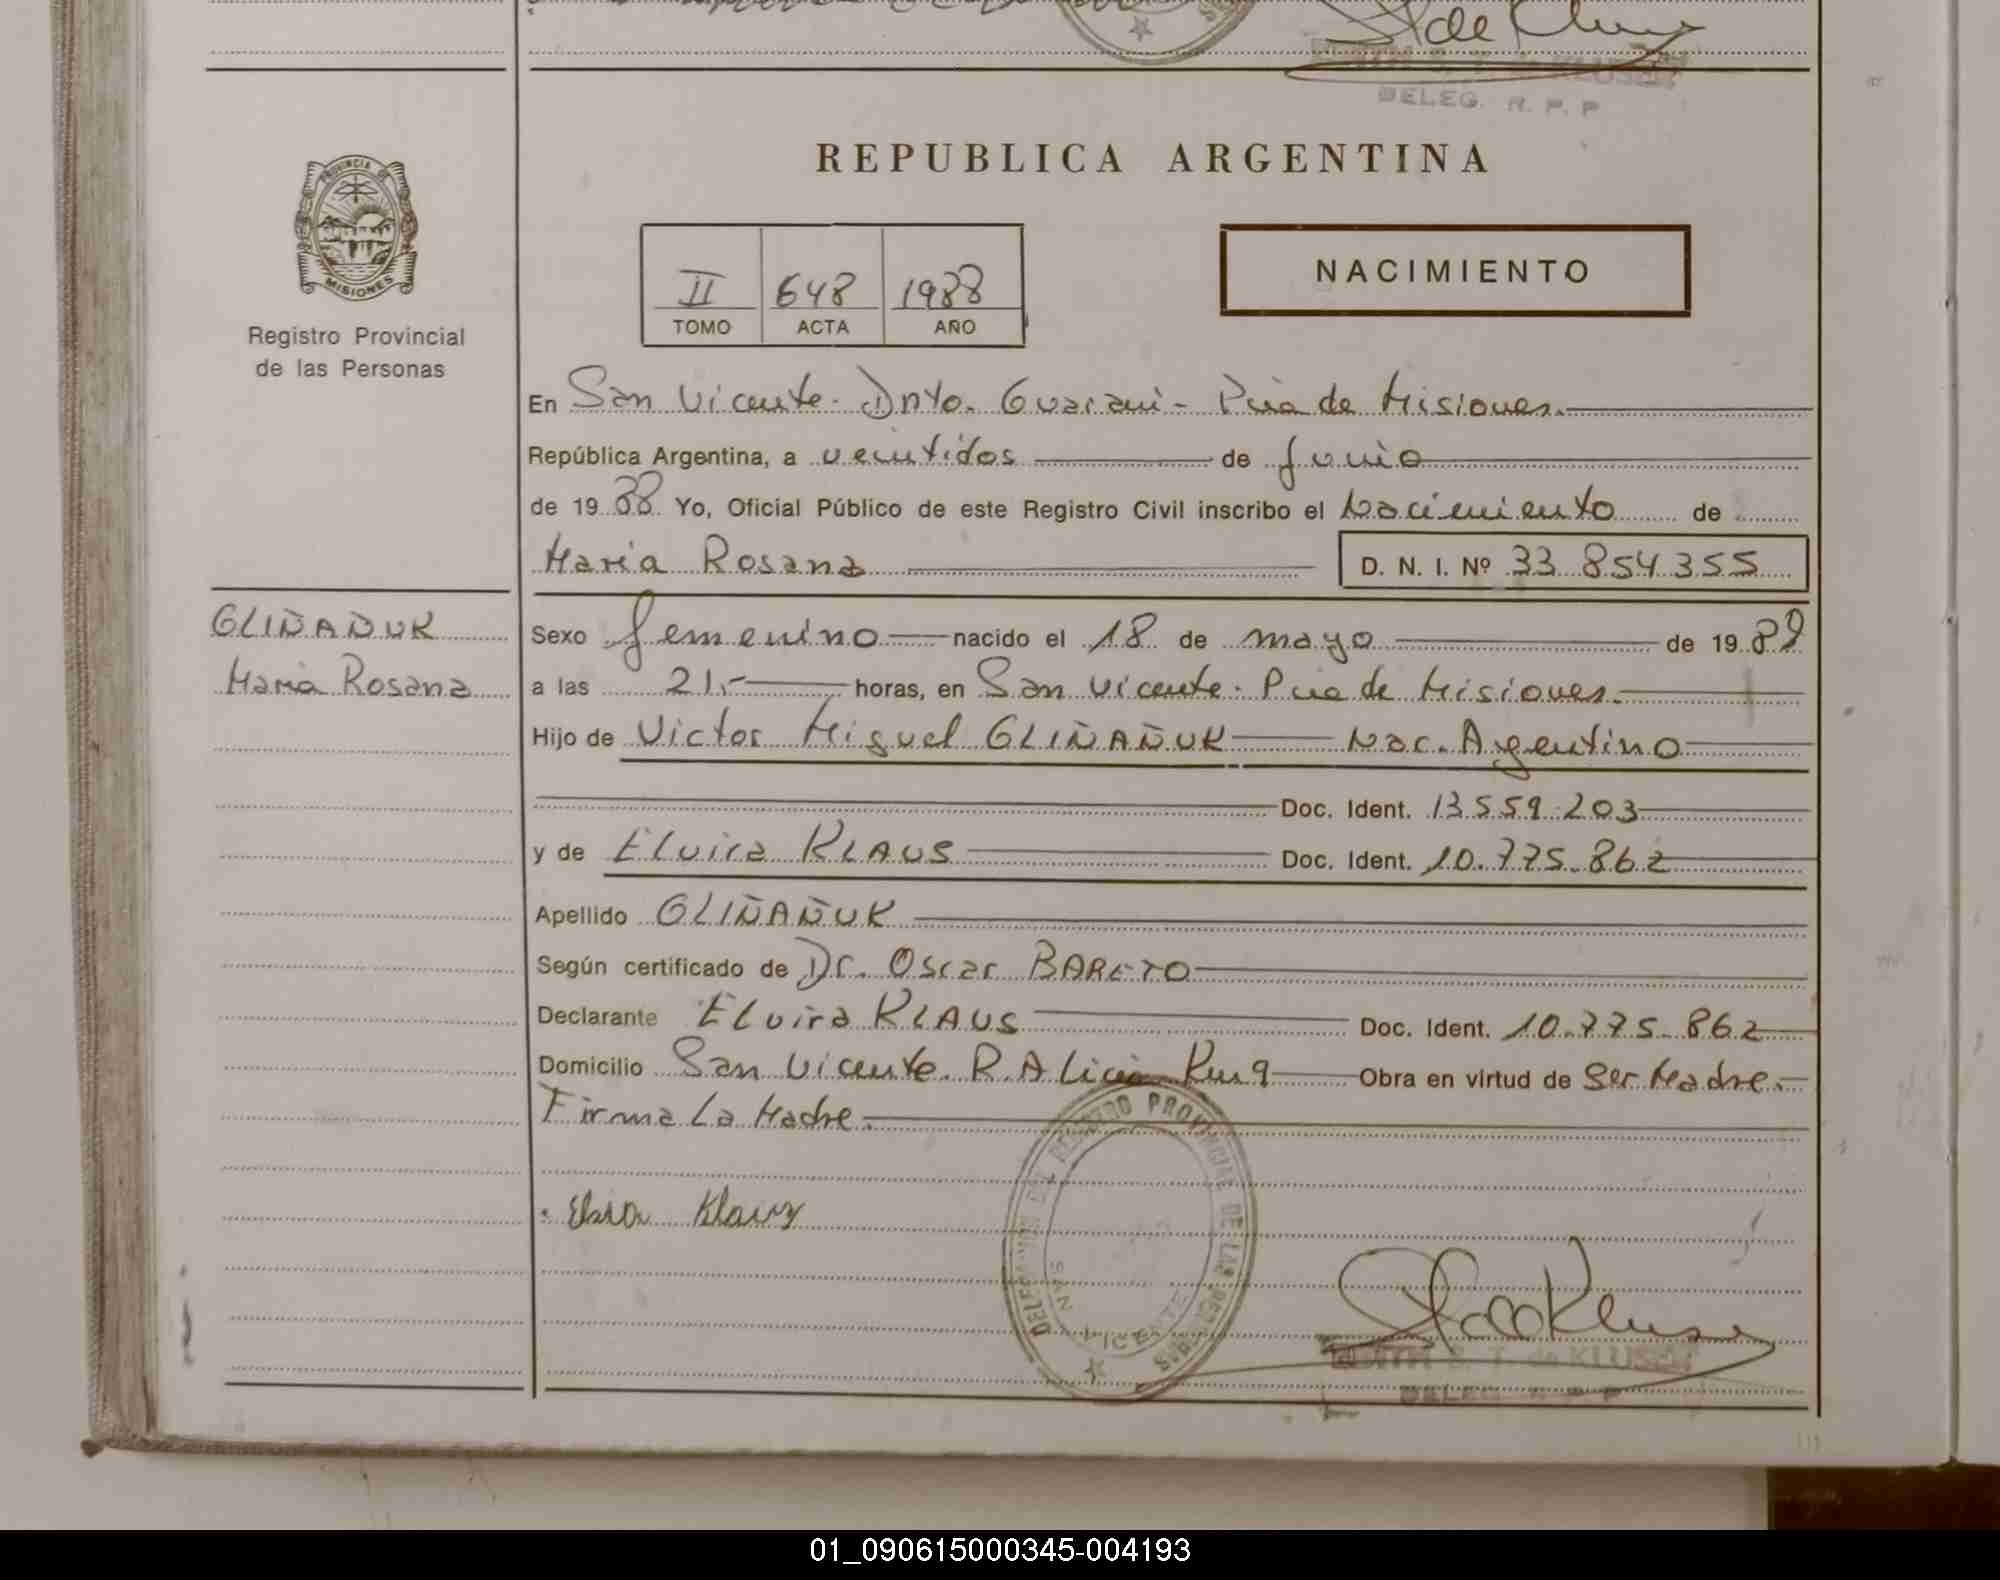 St de Kluse
EDITH S. T. de KLUSE
DELEG. R. P. P
REPUBLICA ARGENTINA
PROVINCIA DE
MISIONES
Registro Provincial
de las Personas
II 648 1988
TOMO ACTA AÑO
NACIMIENTO
En San Vicente - Dpto. Guaraní - Pcia de Misiones.
República Argentina, a veintidos de Junio
de 1988 Yo, Oficial Público de este Registro Civil inscribo el Nacimiento de
Maria Rosana D. N. I. Nº 33.854.355
GLIÑAÑUK
Maria Rosana
Sexo femenino nacido el 18 de mayo de 1988
a las 21.- horas, en San Vicente - Pcia de Misiones.
Hijo de Victor Miguel GLIÑAÑUK Nac. Argentino
Doc. Ident. 13.559.203
y de Elvira KLAUS Doc. Ident. 10.775.862
Apellido GLIÑAÑUK
Según certificado de Dr. Oscar BARETO
Declarante Elvira KLAUS Doc. Ident. 10.775.862
Domicilio San Vicente. R. Alicia Km 9 Obra en virtud de Ser Madre.
Firma La Madre.
DELEGACION DEL REGISTRO PROVINCIAL DE LAS PERSONAS
SAN VICENTE
Klaus
EDITH S. T. de KLUSE
DELEG. R. P. P
01_090615000345-004193